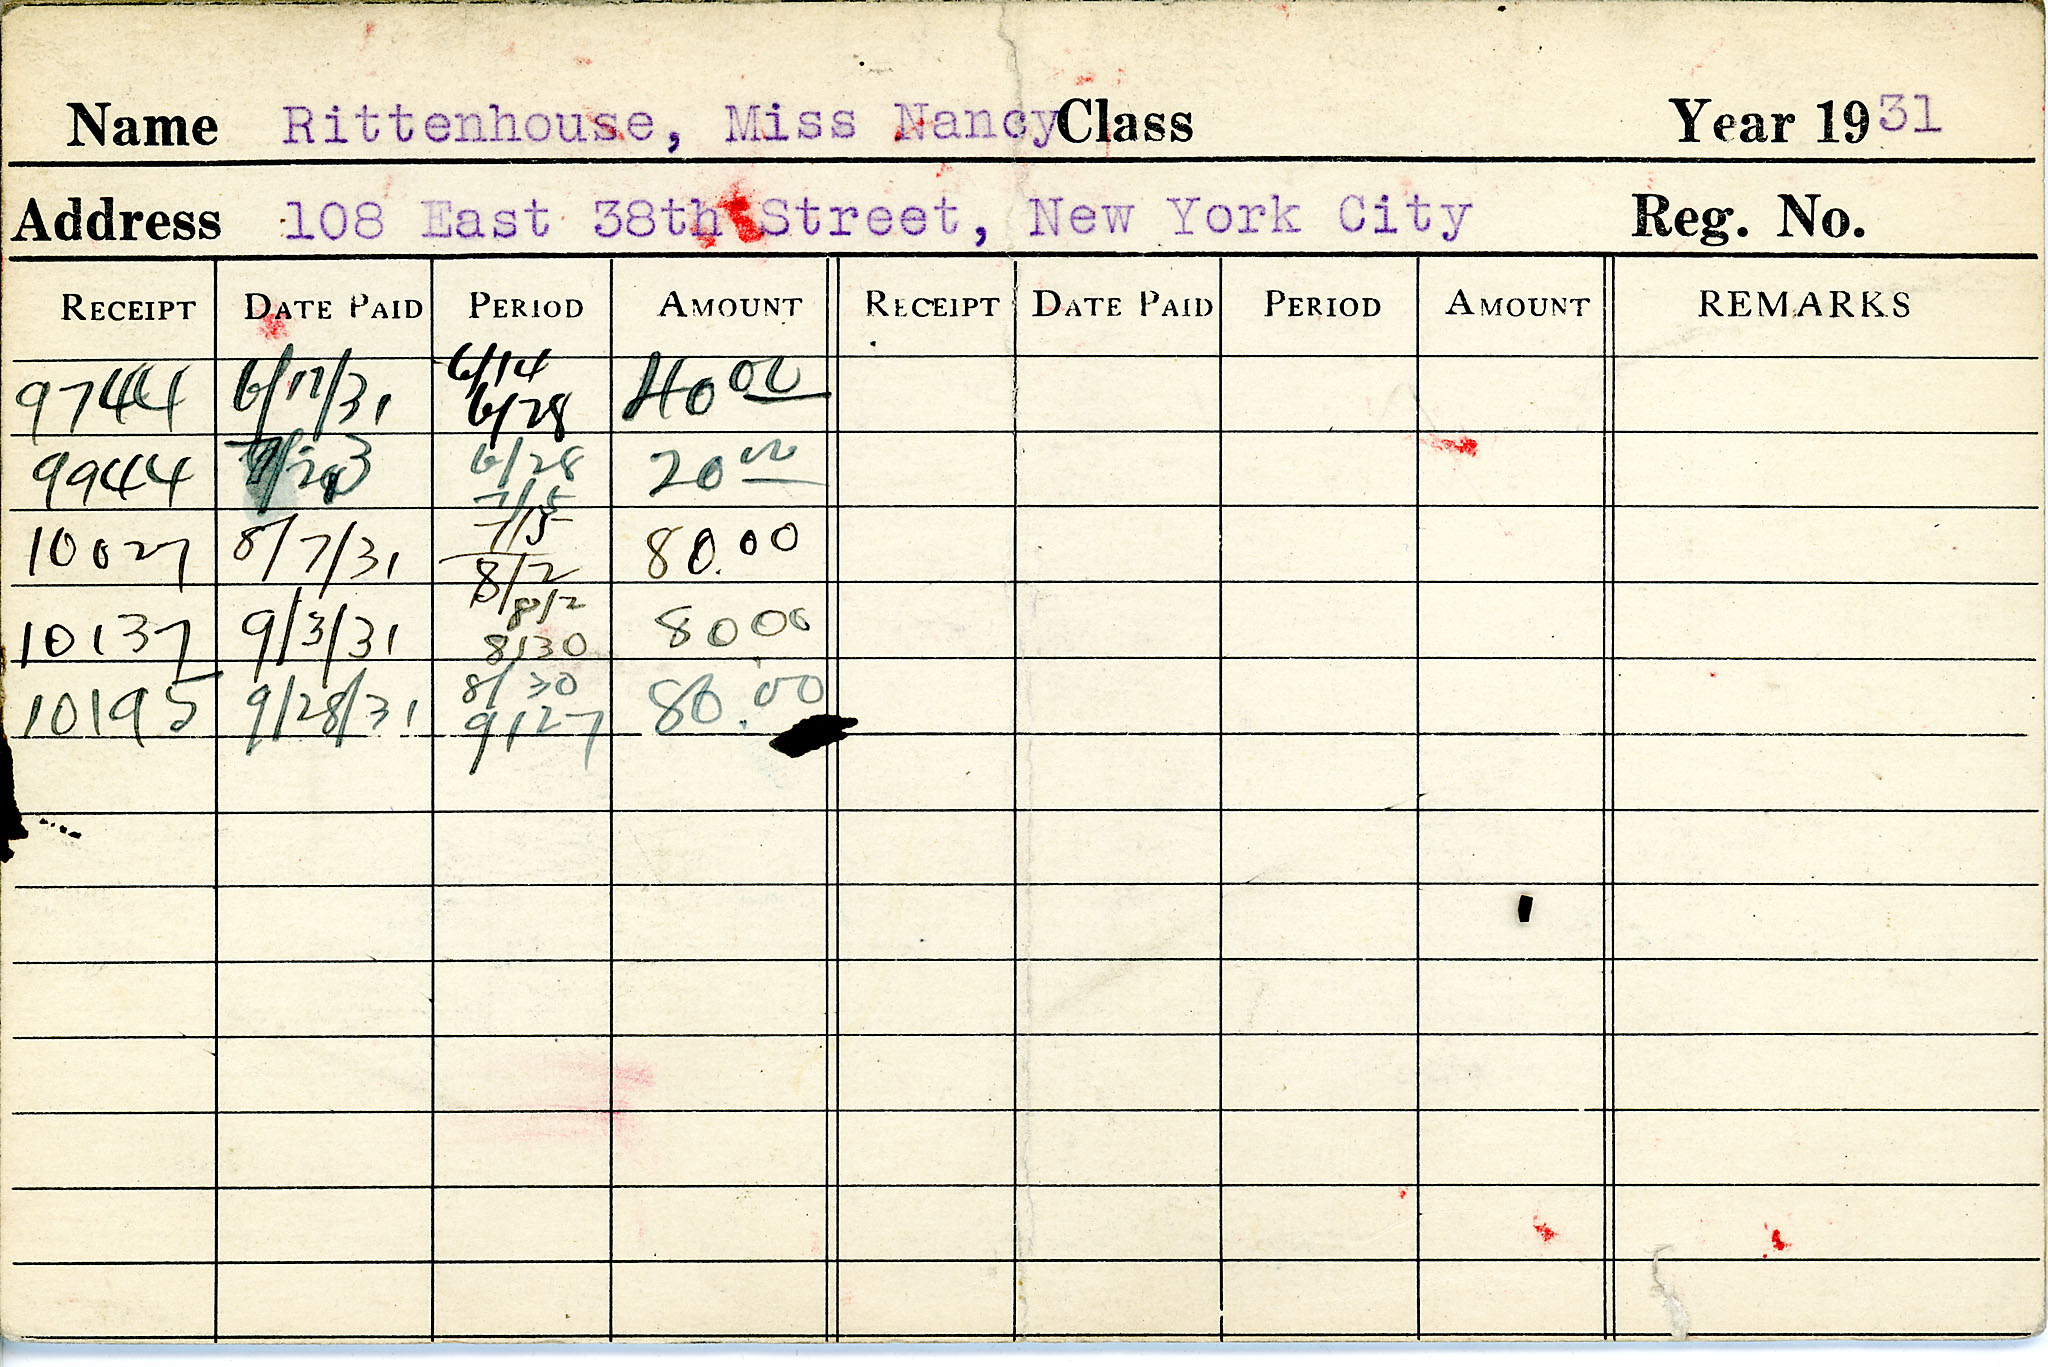 Name Rittenhouse, Miss Nancy Class Year 1931
Address 108 East 38th Street, New York City Reg. No.
RECEIPT DATE PAID PERIOD AMOUNT RECEIPT DATE PAID PERIOD AMOUNT REMARKS
9744 6/17/31 6/14 6/28 40 00
9944 6/28 7/5 20 00
10027 8/7/31 7/5 8/2 80.00
10137 9/3/31 8/2 8/30 80.00
10195 9/28/31 8/30 9/27 80.00